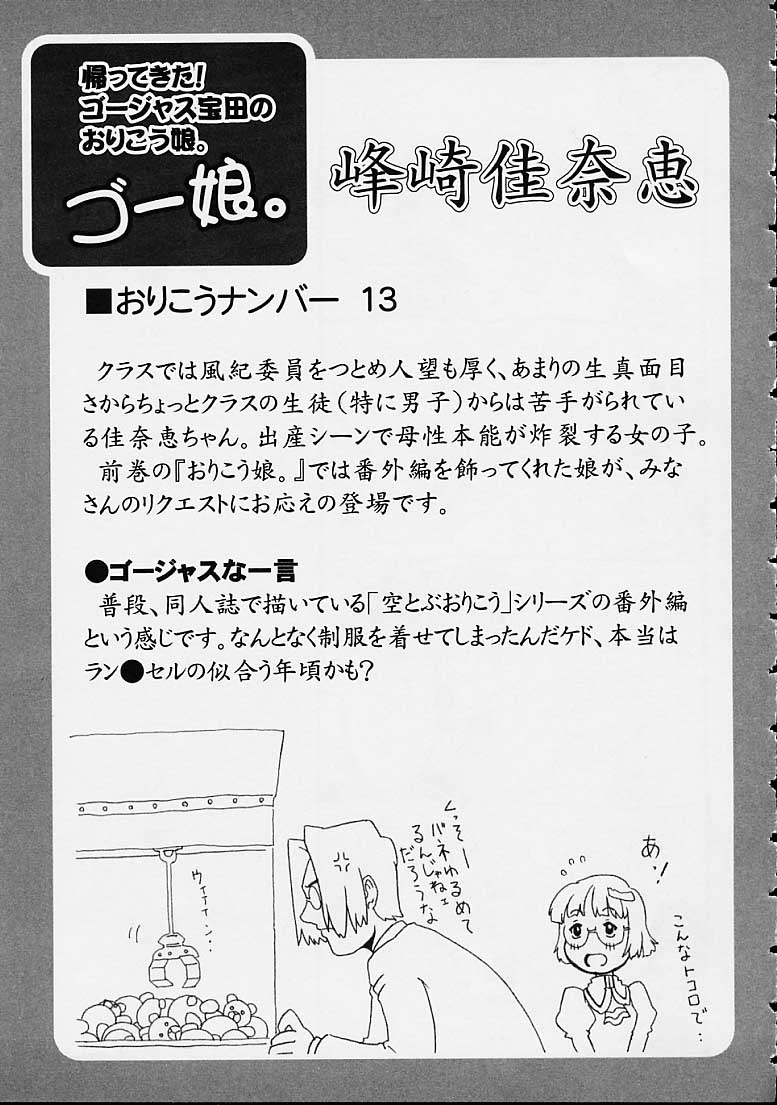 帰ってきた!
ゴージャス宝田の
おりこう娘。
ゴー娘。
峰崎佳奈恵
■おりこうナンバー 13
クラスでは風紀委員をつとめ人望も厚く、あまりの生真面目
さからちょっとクラスの生徒(特に男子)からは苦手がられてい
る佳奈恵ちゃん。出産シーンで母性本能が炸裂する女の子。
前巻の『おりこう娘。』では番外編を飾ってくれた娘が、みな
さんのリクエストにお応えの登場です。
●ゴージャスな一言
普段、同人誌で描いている「空とぶおりこう」シリーズの番外編
という感じです。なんとなく制服を着せてしまったんだケド、本当は
ラン●セルの似合う年頃かも?
あっ!
こんなトコロで‥
くっそー
バネゆるめて
るんじゃねェ
だろうな
ウィイイン…